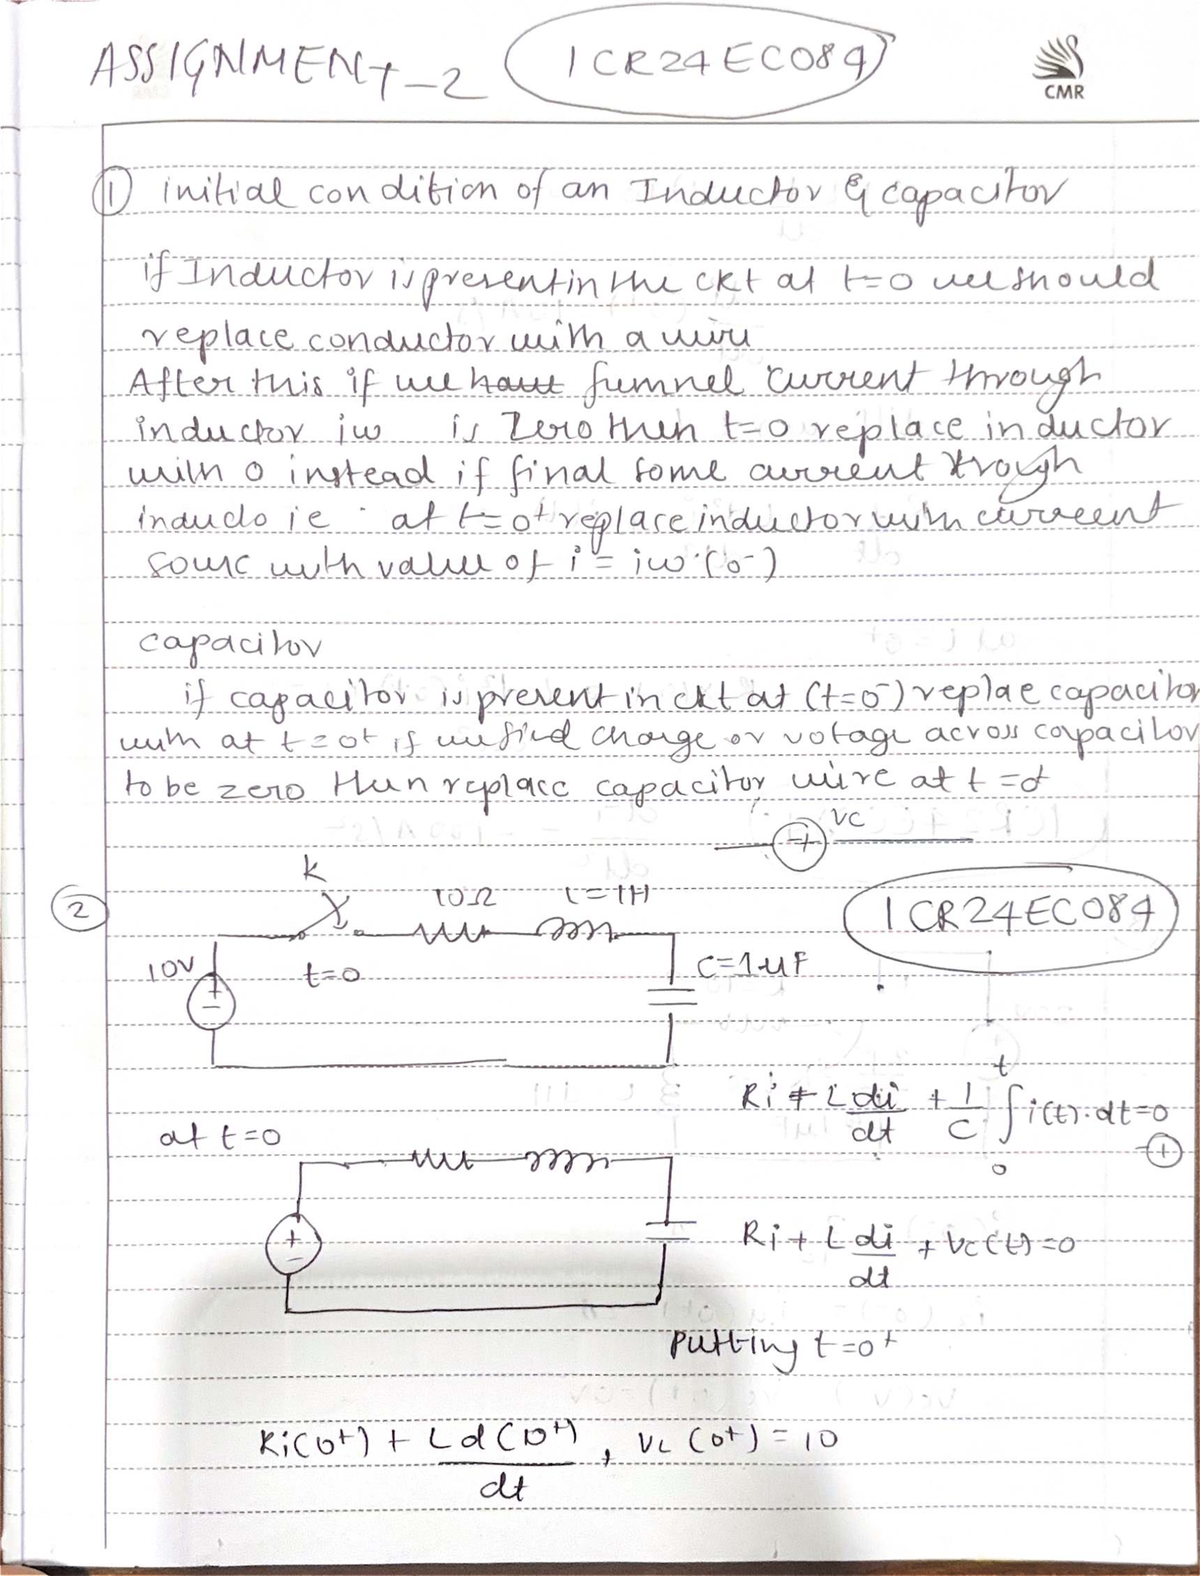 ASSIGNMENT-2 1CR24EC084
CMR
① initial condition of an Inductor & capacitor
if Inductor is present in the ckt at t=0 we should
replace conductor with a wire
After this if we current through
inductor iw is Zero then t=0 replace inductor
with 0 instead if final some current trough
inducto ie at t=0+ replace inductor with curreent
with value of i = iw (0-)
capacitor
if capacitor is present in ckt at (t=0-) replae capacitor
with at t=0+ if we find charge or votage across capacitor
to be zero then replace capacitor wire at t=0+
+ VC
②
K
10Ω L=1H
1CR24EC084
10V + - t=0 C=1μF
Ri + L di/dt + 1/C ∫₀ᵗ i(t).dt=0
①
at t=0
+ -
Ri + L di/dt + Vc(t)=0
putting t=0+
Ri(0+) + Ld(10+)/dt , VL (0+) = 10